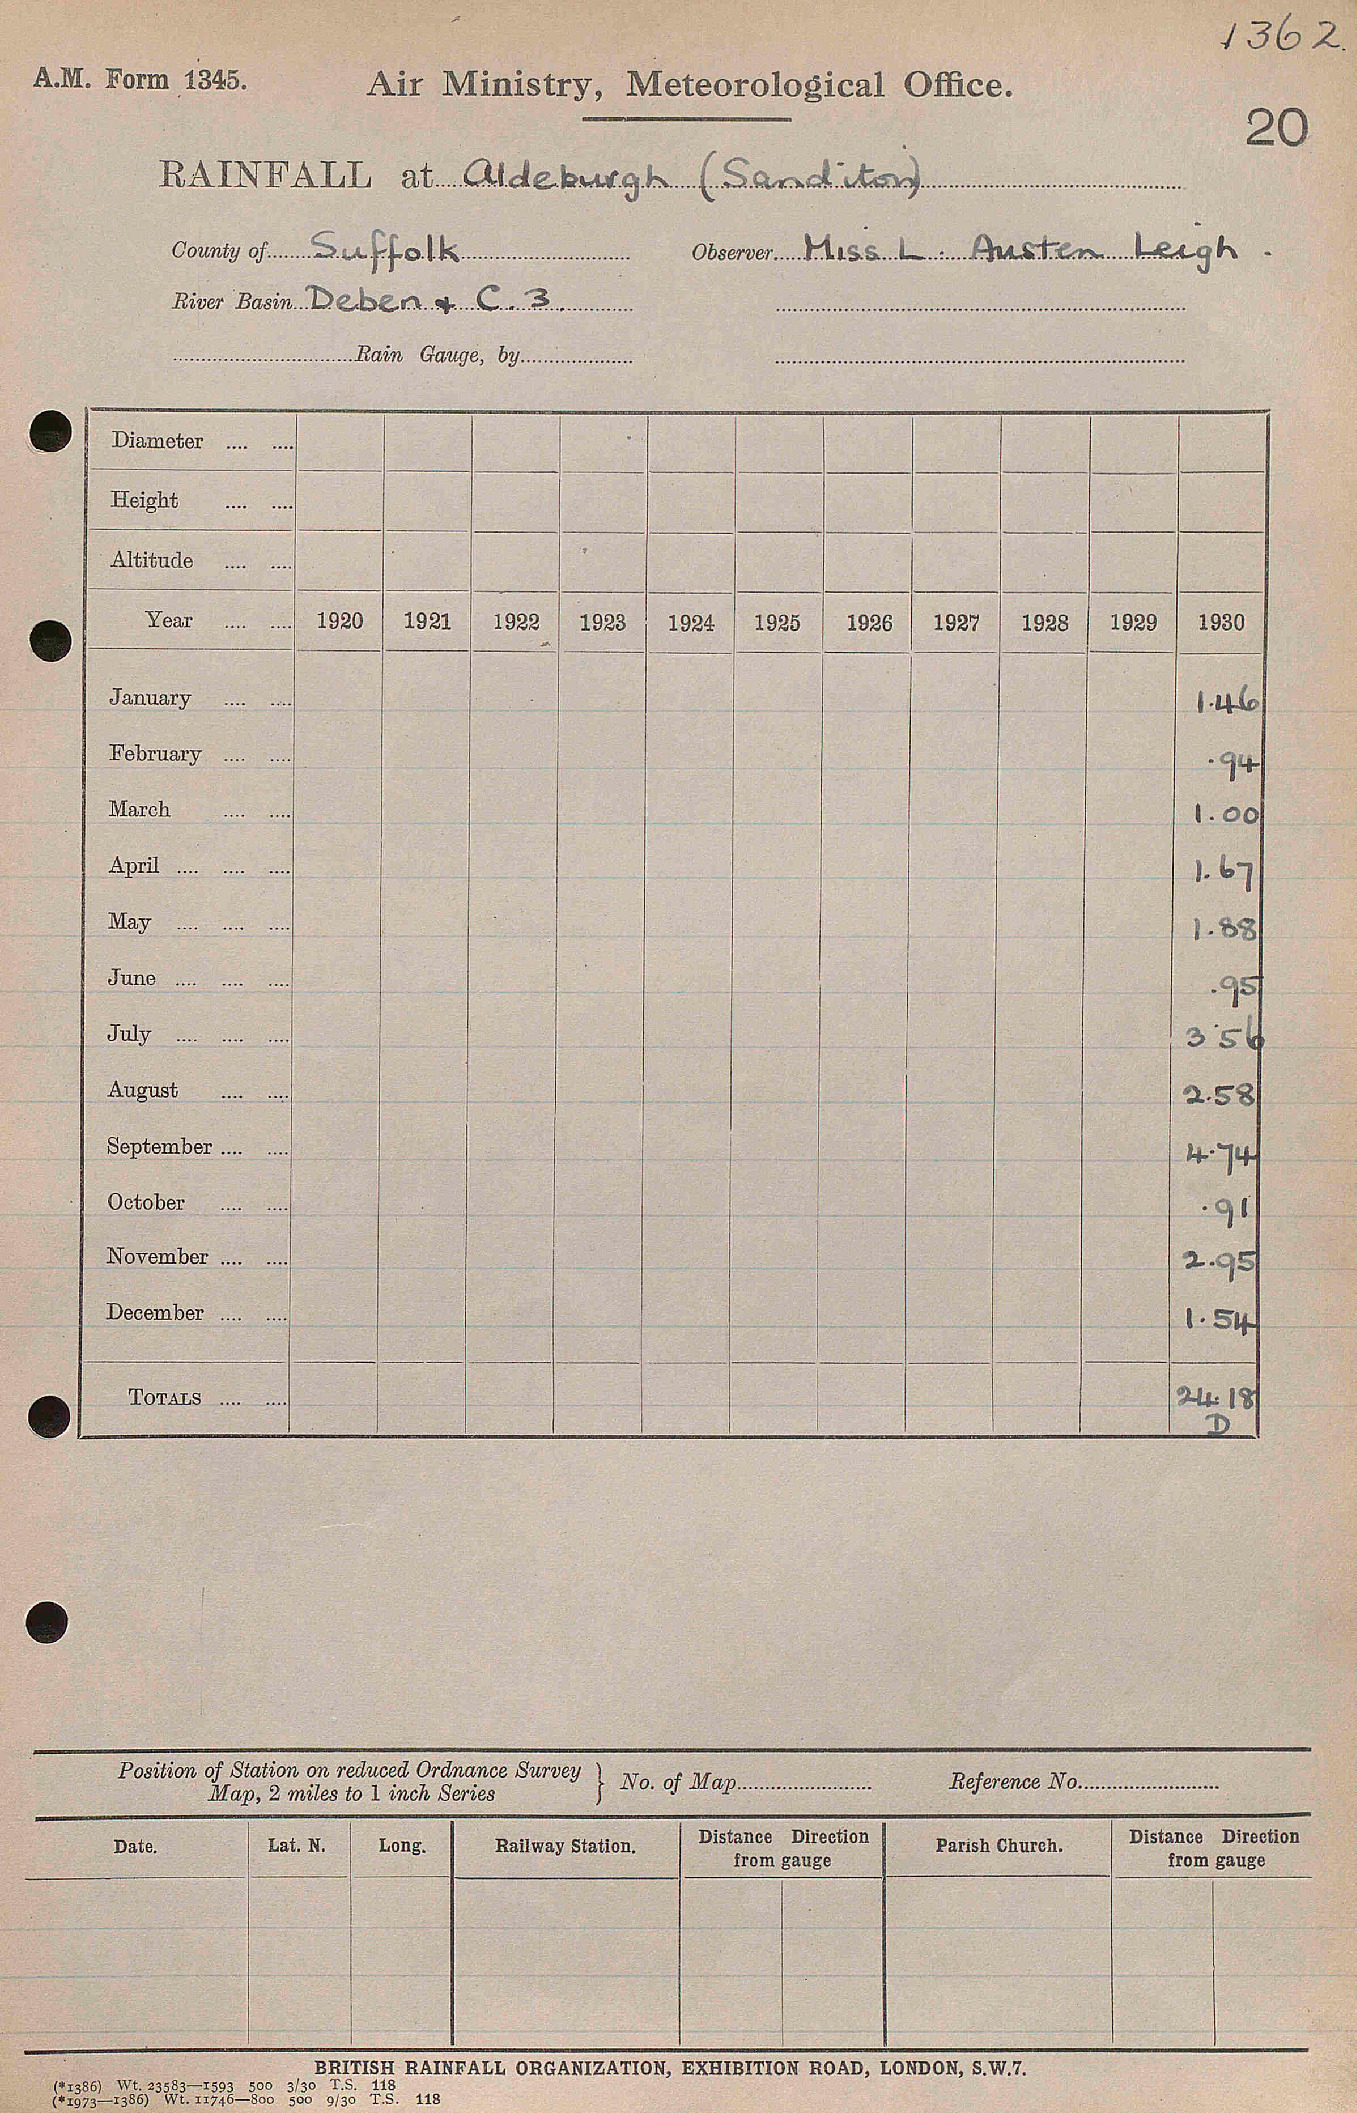 1362.
A.M. Form 1345.
Air Ministry, Meteorological Office.
20
RAINFALL at Aldeburgh (Sanditon)
County of Suffolk
Observer Miss L. Austen Leigh.
River Basin Deben & C.3.
Rain Gauge, by
Diameter
Height
Altitude
Year 1920 1921 1922 1923 1924 1925 1926 1927 1928 1929 1930
January 1.46
February .94
March 1.00
April 1.67
May 1.88
June .95
July 3.56
August 2.58
September 4.74
October .91
November 2.95
December 1.54
TOTALS 24.18
D
Position of Station on reduced Ordnance Survey
Map, 2 miles to 1 inch Series
No. of Map
Reference No.
Date. Lat. N. Long. Railway Station. Distance Direction from gauge Parish Church. Distance Direction from gauge
BRITISH RAINFALL ORGANIZATION, EXHIBITION ROAD, LONDON, S.W.7.
(*1386) Wt. 23583—1593 500 3/30 T.S. 118
(*1973—1386) Wt. 11746—800 500 9/30 T.S. 118